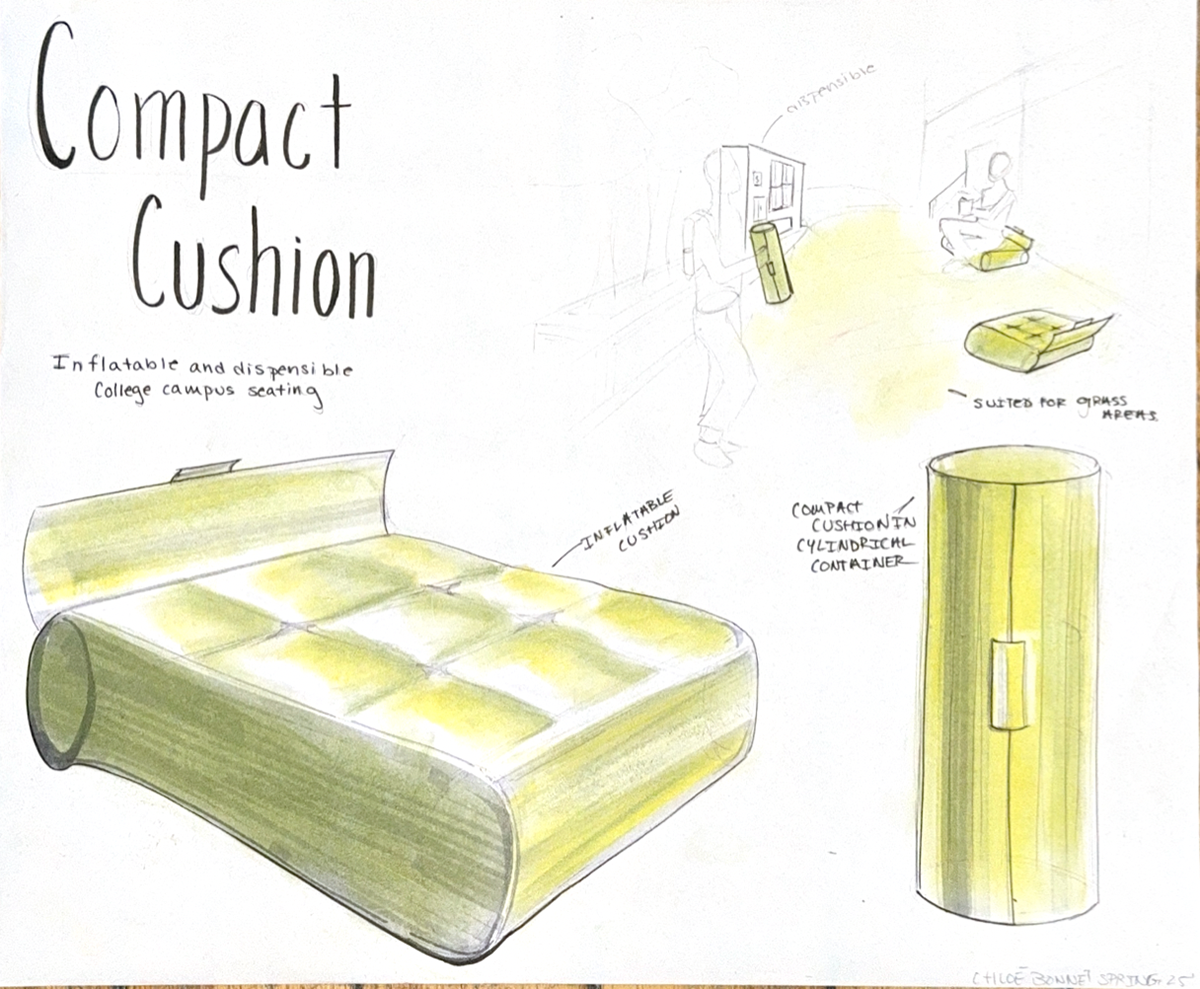 Compact
Cushion
Inflatable and dispensible
College campus seating
dispensible
SUITED FOR grass
AREAS.
INFLATABLE
CUSHION
COMPACT
CUSHION IN
CYLINDRICAL
CONTAINER
CHLOÉ BONNET SPRING 25'